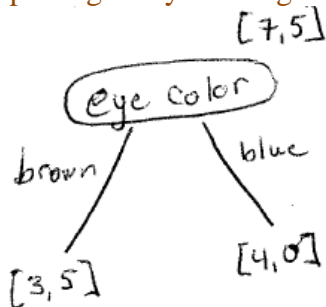 [7,5]
eye color
brown
blue
[3,5]
[4,0]